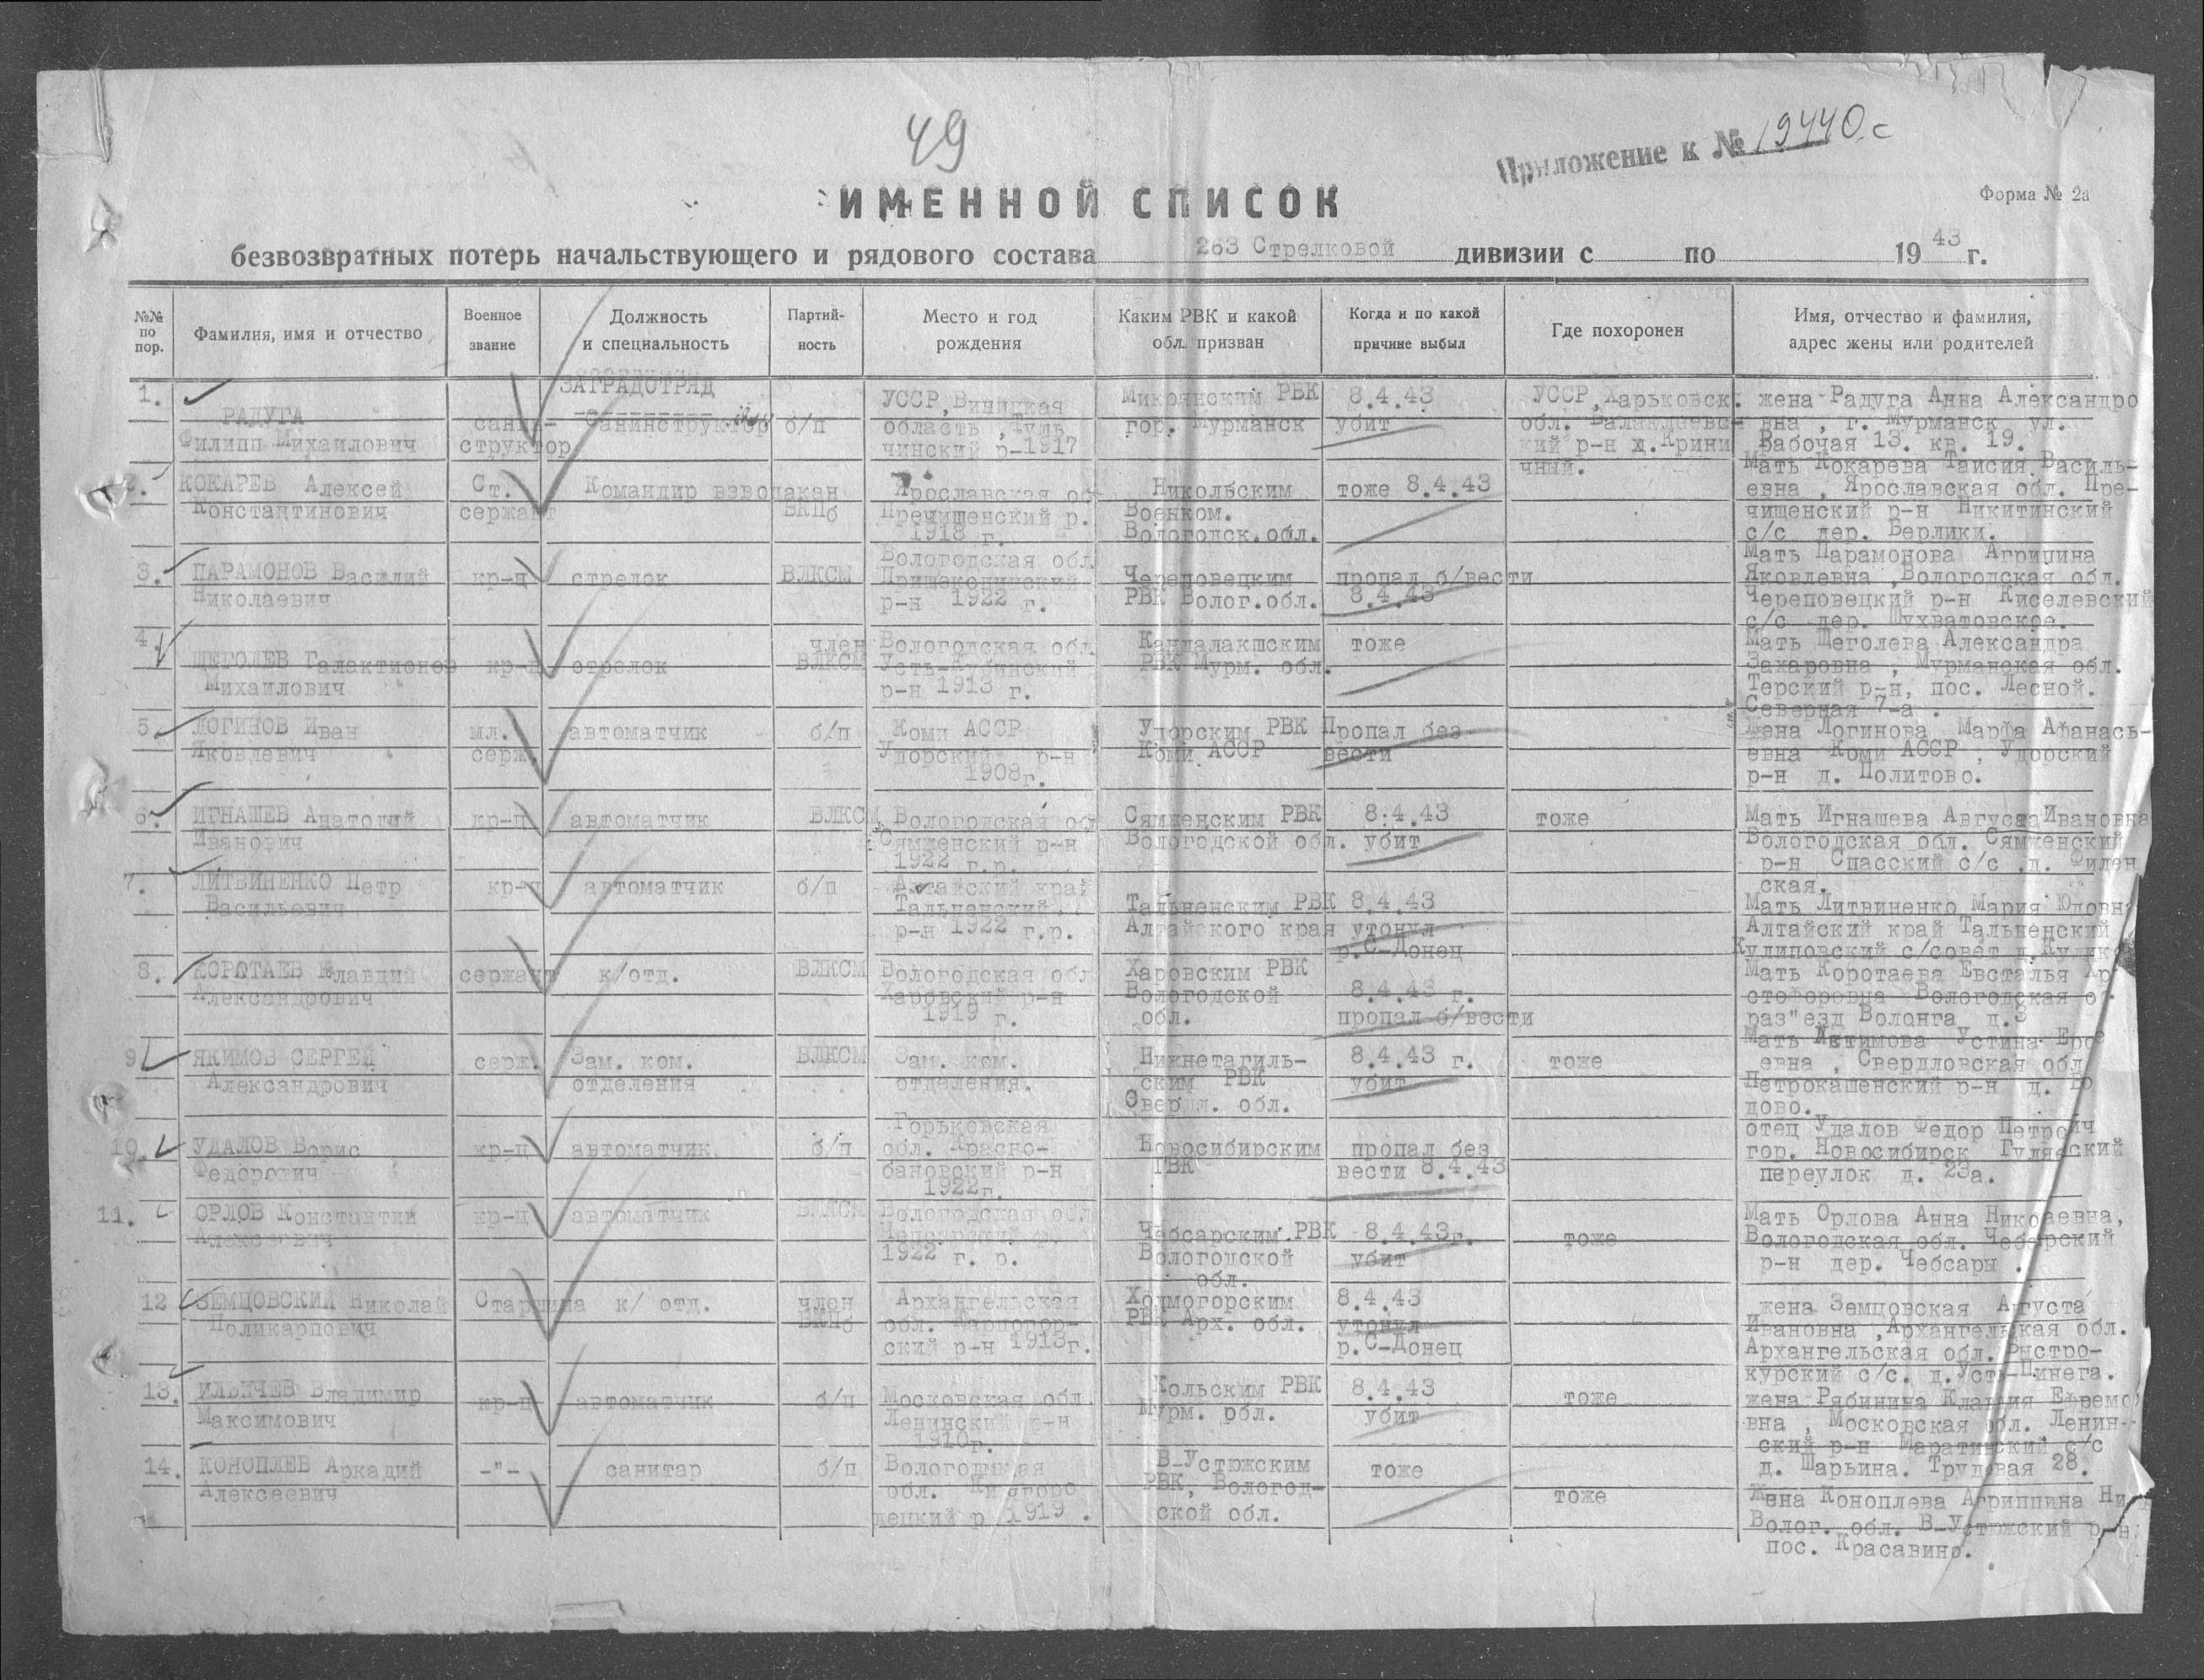 49
Приложение к № 19440.с
ИМЕННОЙ СПИСОК
Форма № 2а
безвозвратных потерь начальствующего и рядового состава 263 Стрелковой дивизии с по 1943 г.
№№ по пор.
Фамилия, имя и отчество
Военное звание
Должность и специальность
Партийность
Место и год рождения
Каким РВК и какой обл. призван
Когда и по какой причине выбыл
Где похоронен
Имя, отчество и фамилия, адрес жены или родителей
ЗАГРАДОТРЯД
1. РАДУГА
Филипп Михайлович
санин-
структор
Санинструктор
б/п
УССР, Виницкая
область, Туль
чинский р-1917
Микоянским РВК
гор. Мурманск
8.4.43
убит
УССР, Харьковск.
обл. Балаклеевс-
кий р-н д. Крини
чный.
жена Радуга Анна Александро
вна, г. Мурманск ул.
Рабочая 13. кв. 19.
2. КОКАРЕВ Алексей
Константинович
Ст.
сержант
Командир взвода
кан
ВКПб
Ярославская об
Пречищенский р.
1918 г.
Никольским
Военком.
Вологодск.обл.
тоже 8.4.43
Мать Кокарева Таисия Василь-
евна, Ярославская обл. Пре-
чищенский р-н Никитинский
с/с дер. Берлики.
3. ПАРАМОНОВ Василий
Николаевич
кр-ц
стрелок
ВЛКСМ
Вологодская обл
р-н 1922 г.
Череповецким
РВК Волог.обл.
пропал б/вести
8.4.43
Мать Парамонова Агрипина
Яковлевна, Вологодская обл.
Череповецкий р-н Киселевский
с/с дер. Шухватовское.
4. ЩЕГОЛЕВ Галактионов
Михаилович
кр-ц
стрелок
член
ВЛКСМ
Вологодская обл
Усть-Кубинский
р-н 1913 г.
Кандалакшским
РВК Мурм. обл.
тоже
Мать Щеголева Александра
Захаровна, Мурманская обл.
Терский р-н, пос. Лесной.
Северная 7-а.
5. ЛОГИНОВ Иван
Яковлевич
мл.
серж.
автоматчик
б/п
Коми АССР
Удорский р-н
1908г.
Удорским РВК
Коми АССР
Пропал без
вести
Жена Логинова Марфа Афанась-
евна Коми АССР, Удорский
р-н д. Политово.
6. ИГНАШЕВ Анатолий
Иванович
кр-ц
автоматчик
ВЛКСМ
Вологодская об
Сямженский р-н
1922 г.р.
Сямженским РВК
Вологодской обл.
8.4.43
убит
тоже
Мать Игнашева Августа Ивановна
Вологодская обл. Сямженский
р-н Спасский с/с, д. Филен
ская.
7. ЛИТВИНЕНКО Петр
Васильевич
кр-ц
автоматчик
б/п
Алтайский край
Тальменский
р-н 1922 г.р.
Тальненским РВК
Алтайского края
8.4.43
утонул
р.С-Донец
Мать Литвиненко Мария Юдовна
Алтайский край Тальненский
8. КОРОТАЕВ Клавдий
Александрович
сержант
к/отд.
ВЛКСМ
Вологодская обл
Харовский р-н
1919 г.
Харовским РВК
Вологодской
обл.
8.4.43 г.
пропал б/вести
Мать Коротаева Евсталья Хр
стофоровна Вологодская о
раз"езд Волонга д.3
9. ЯКИМОВ СЕРГЕЙ
Александрович
серж.
Зам. ком.
отделения
ВЛКСМ
Зам. ком.
отделения.
Нижнетагиль-
ским РВК
Сверд л. обл.
8.4.43 г.
убит
тоже
евна, Свердловская обл
Петрокашенский р-н д.
дово.
10. УДАЛОВ Борис
Федорович
кр-ц
автоматчик
б/п
Горьковская
обл. Красно-
бановский р-н
1922г.
Новосибирским
ГВК
пропал без
вести 8.4.43
отец Удалов Федор Петрович
гор. Новосибирск
переулок д. 23а.
11. ОРЛОВ Константин
Алексеевич
кр-ц
автоматчик
ВЛКСМ
Вологодская обл
1922 г. р.
Чебсарским РВК
Вологодской
обл.
8.4.43г.
убит
тоже
Мать Орлова Анна Николаевна,
Вологодская обл. Чебсарский
р-н дер. Чебсары.
12 ЗЕМЦОВСКИЙ Николай
Поликарпович
Старшина
к/ отд.
член
ВКПб
Архангельская
обл. Карпогор-
ский р-н 1913г.
Холмогорским
РВК Арх. обл.
8.4.43
утонул
р.С-Донец
жена Земцовская Августа
Ивановна, Архангельская обл.
Архангельская обл. Быстро-
курский с/с. д.Усть-Пинега.
13. ИЛЬИЧЕВ Владимир
Максимович
кр-ц
автоматчик
б/п
Московская обл
Ленинский р-н
1910г.
Кольским РВК
Мурм. обл.
8.4.43
убит
тоже
жена Рябинина Клавдия Ефремо
вна, Московская обл. Ленин-
ский р-н с/с
д. Шарьина. Трудовая 28.
14. КОНОПЛЕВ Аркадий
Алексеевич
-"-
санитар
б/п
Вологодская
обл.
1919.
В-Устюжским
РВК, Вологод-
ской обл.
тоже
тоже
Жена Коноплева Агриппина Ни
Волог. обл. В-Устюжский р-н.
пос. Красавино.